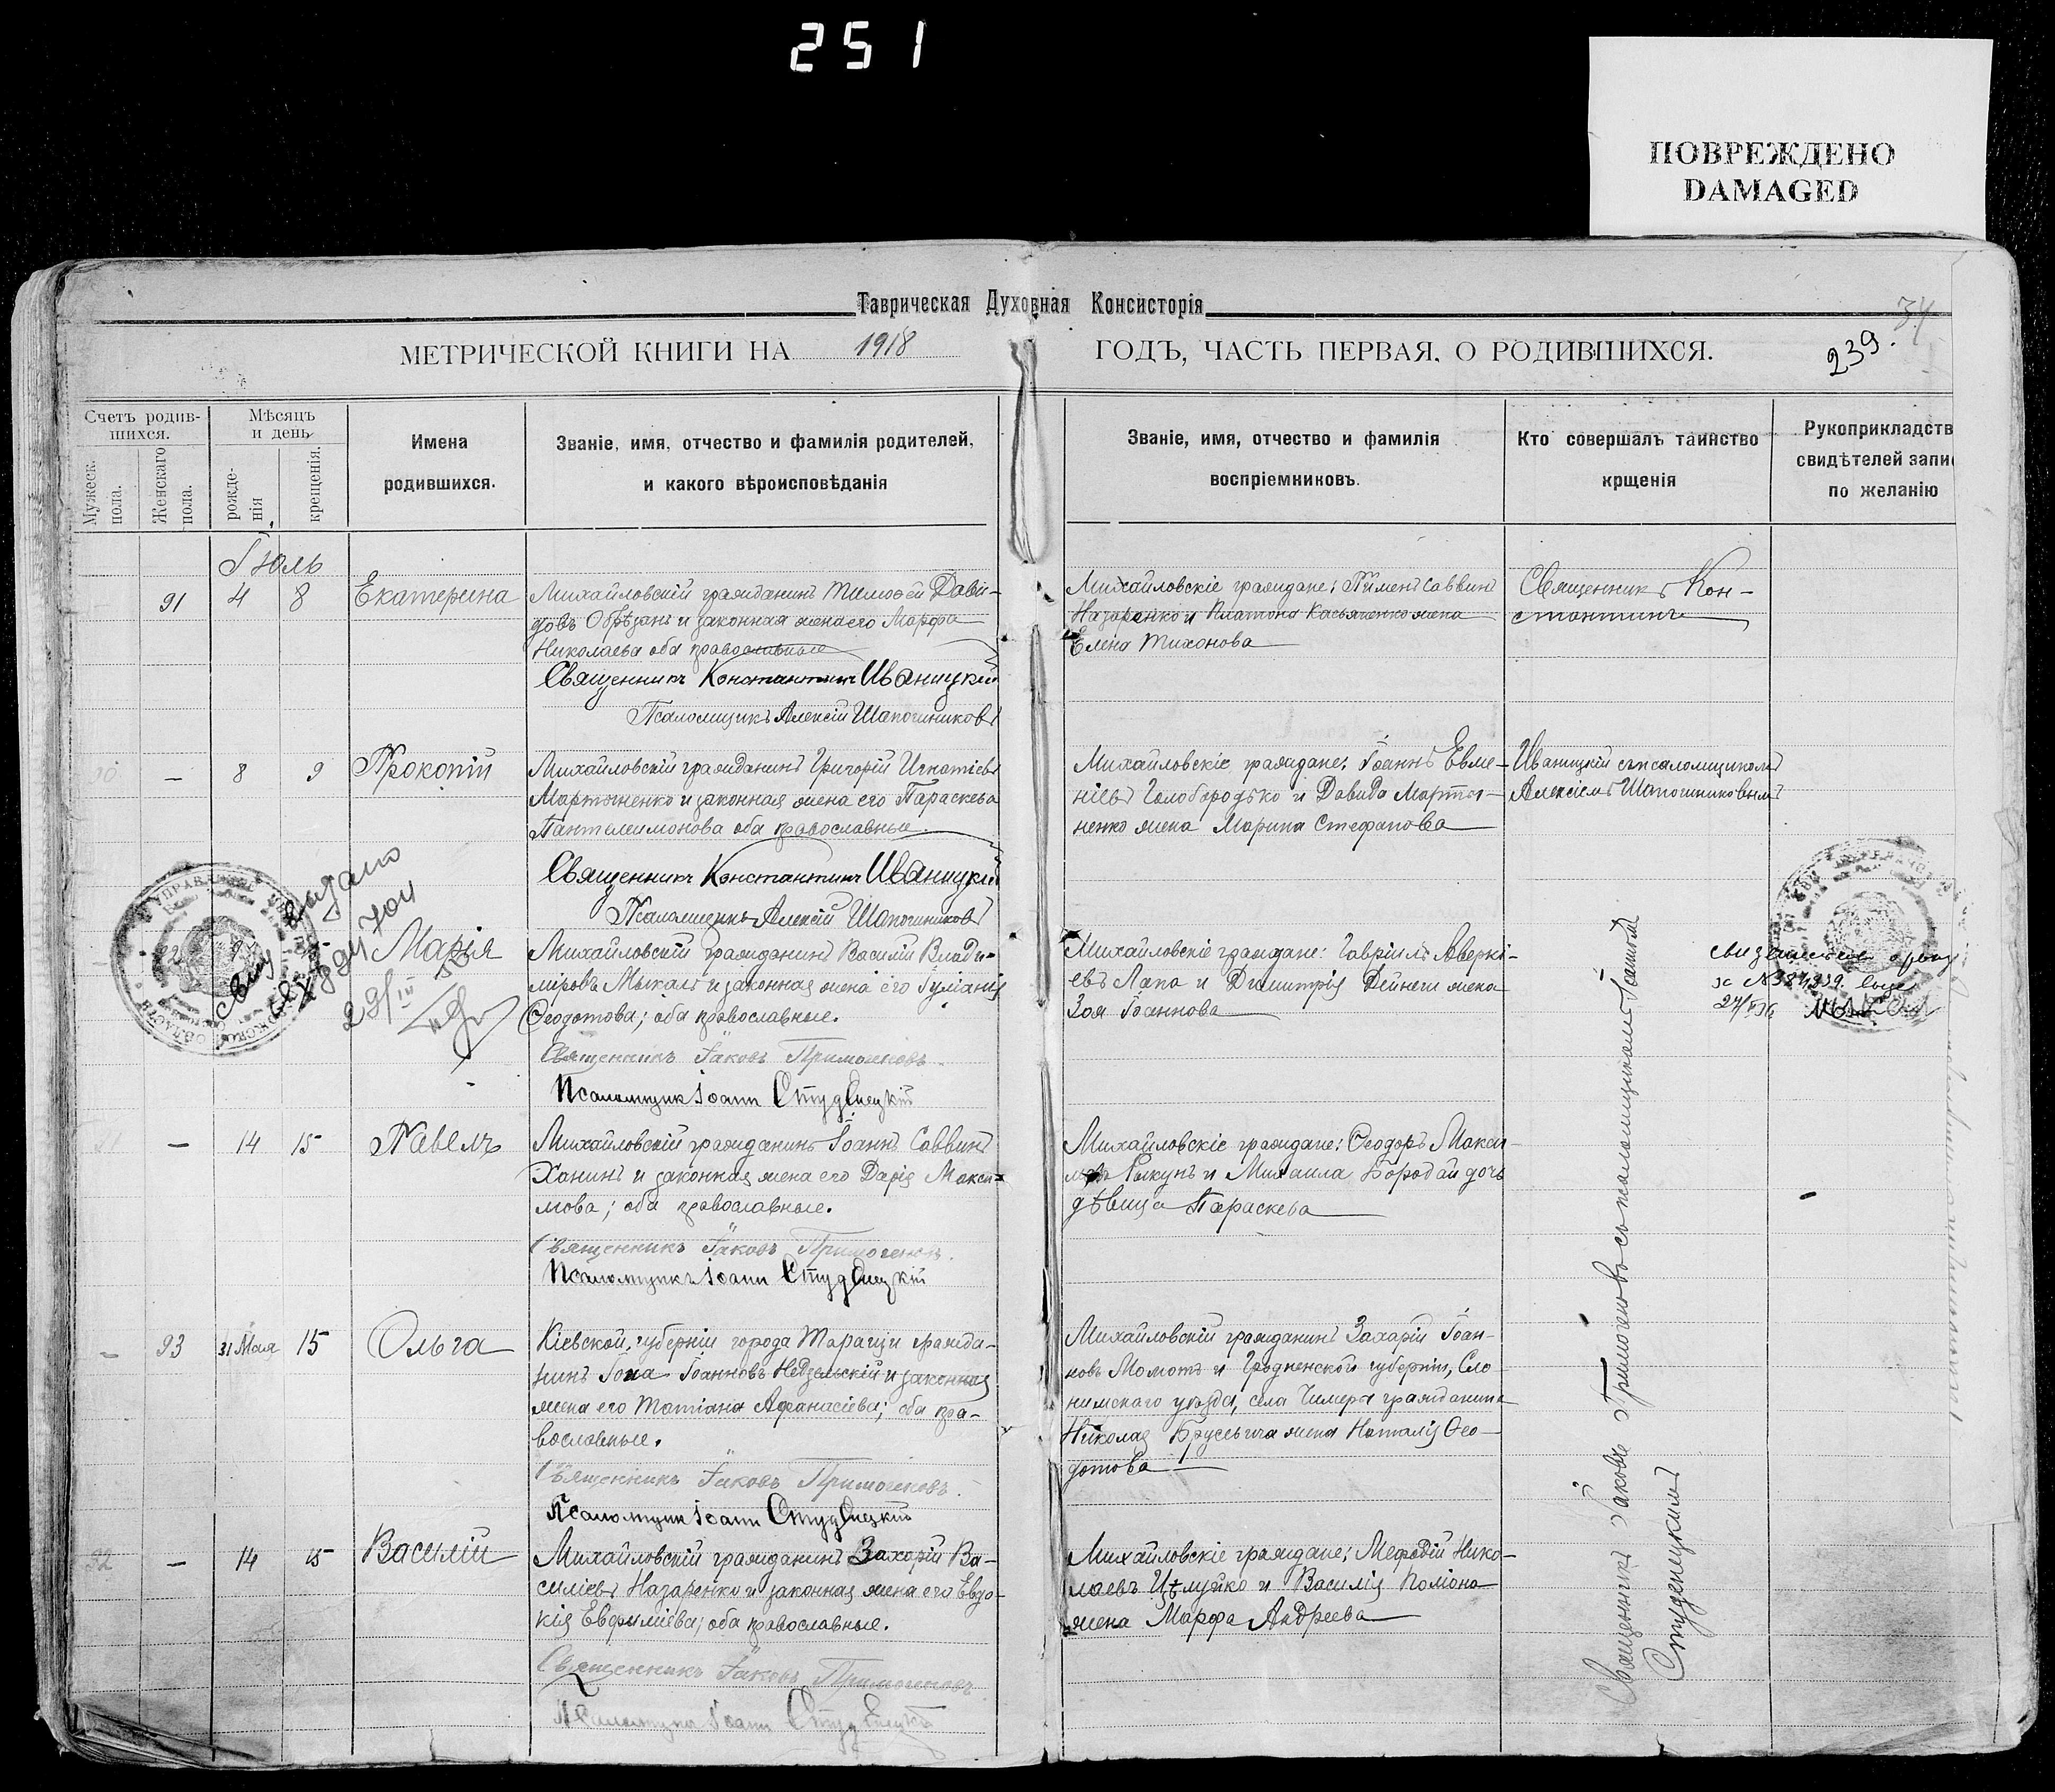 251
ПОВРЕЖДЕНО
DAMAGED
Таврическая Духовная Консисторія
МЕТРИЧЕСКОЙ КНИГИ НА 1918 ГОДЪ, ЧАСТЬ ПЕРВАЯ, О РОДИВШИХСЯ.
34
239.
Счетъ родив-
шихся.
Мужеск.
пола.
Женскаго
пола.
Мѣсяцъ
и день
рожде-
нія
крещенія.
Имена
родившихся.
Званіе, имя, отчество и фамилія родителей,
и какого вѣроисповѣданія
Званіе, имя, отчество и фамилія
воспріемниковъ.
Кто совершалъ таинство
крщенія
Рукоприкладств
свидѣтелей запи
по желанію
Іюль
91 4 8 Екатерина
Михайловскій гражданинъ Тимоѳей Дави-
довъ Обрѣзанъ и законная жена его Марфа
Николаева оба православные
Священникъ Константинъ Иваницкій
Псаломщикъ Алексій Шапошниковъ
Михайловскіе граждане: Пименъ Саввинъ
Назаренко и Платона Касьяненко жена
Елена Тихонова
Священникъ Кон-
стантинъ
90 — 8 9 Прокопій
Михайловскій гражданинъ Григорій Игнатіевъ
Мартыненко и законная жена его Параскева
Пантелеимонова оба православные.
Священникъ Константинъ Иваницкій
Псаломщикъ Алексій Шапошниковъ
Михайловскіе граждане: Іоаннъ Евме-
ніевъ Голобородько и Давида Марты-
ненко жена Марина Стефанова
Иваницкій съ псаломщикомъ
Алексіемъ Шапошниковымъ
92 Марія
выдано
29/III
Михайловскій гражданинъ Василій Влади-
міровъ Мыкалъ и законная жена его Іуліанія
Ѳеодотова; оба православные.
Священникъ Іаковъ Примогеновъ
Псаломщикъ Іоаннъ Студенецкій
Михайловскіе граждане: Гавріилъ Аверкі-
евъ Лапа и Димитрія Дейнеги жена
Зоя Іоаннова
91 — 14 15 Павелъ
Михайловскій гражданинъ Іоаннъ Саввинъ
Ханинъ и законная жена его Дарія Макси-
мова; оба православные.
Священникъ Іаковъ Примогеновъ.
Псаломщикъ Іоаннъ Студенецкій
Михайловскіе граждане: Ѳеодоръ Макси-
мовъ и Михаила Бородай дочь
дѣвица Параскева
— 93 31 Мая 15 Ольга
Кіевской губерніи города Таращи гражда-
нинъ Іона Іоанновъ Недзельскій и законная
жена его Татіана Аѳанасіева; оба пра-
вославные.
Священникъ Іаковъ Примогеновъ.
Псаломщикъ Іоаннъ Студенецкій
Михайловскій гражданинъ Захарій Іоан-
новъ Момотъ и Гродненской губерніи, Сло-
нимскаго уѣзда, села Чемеры гражданина
Николая Брусевича жена Наталія Ѳео-
дотова
92 — 14 15 Василій
Михайловскій гражданинъ Захарій Ва-
силіевъ Назаренко и законная жена его Евдо-
кія Евфиміева; оба православные.
Священникъ Іаковъ Примогеновъ
Псаломщикъ Іоаннъ Студенецкій
Михайловскіе граждане: Меѳодій Нико-
лаевъ Цѣлуйко и Василія
жена Марфа Андреева
Священникъ Іаковъ Примогеновъ съ псаломщикомъ Іоанномъ
Студенецкимъ